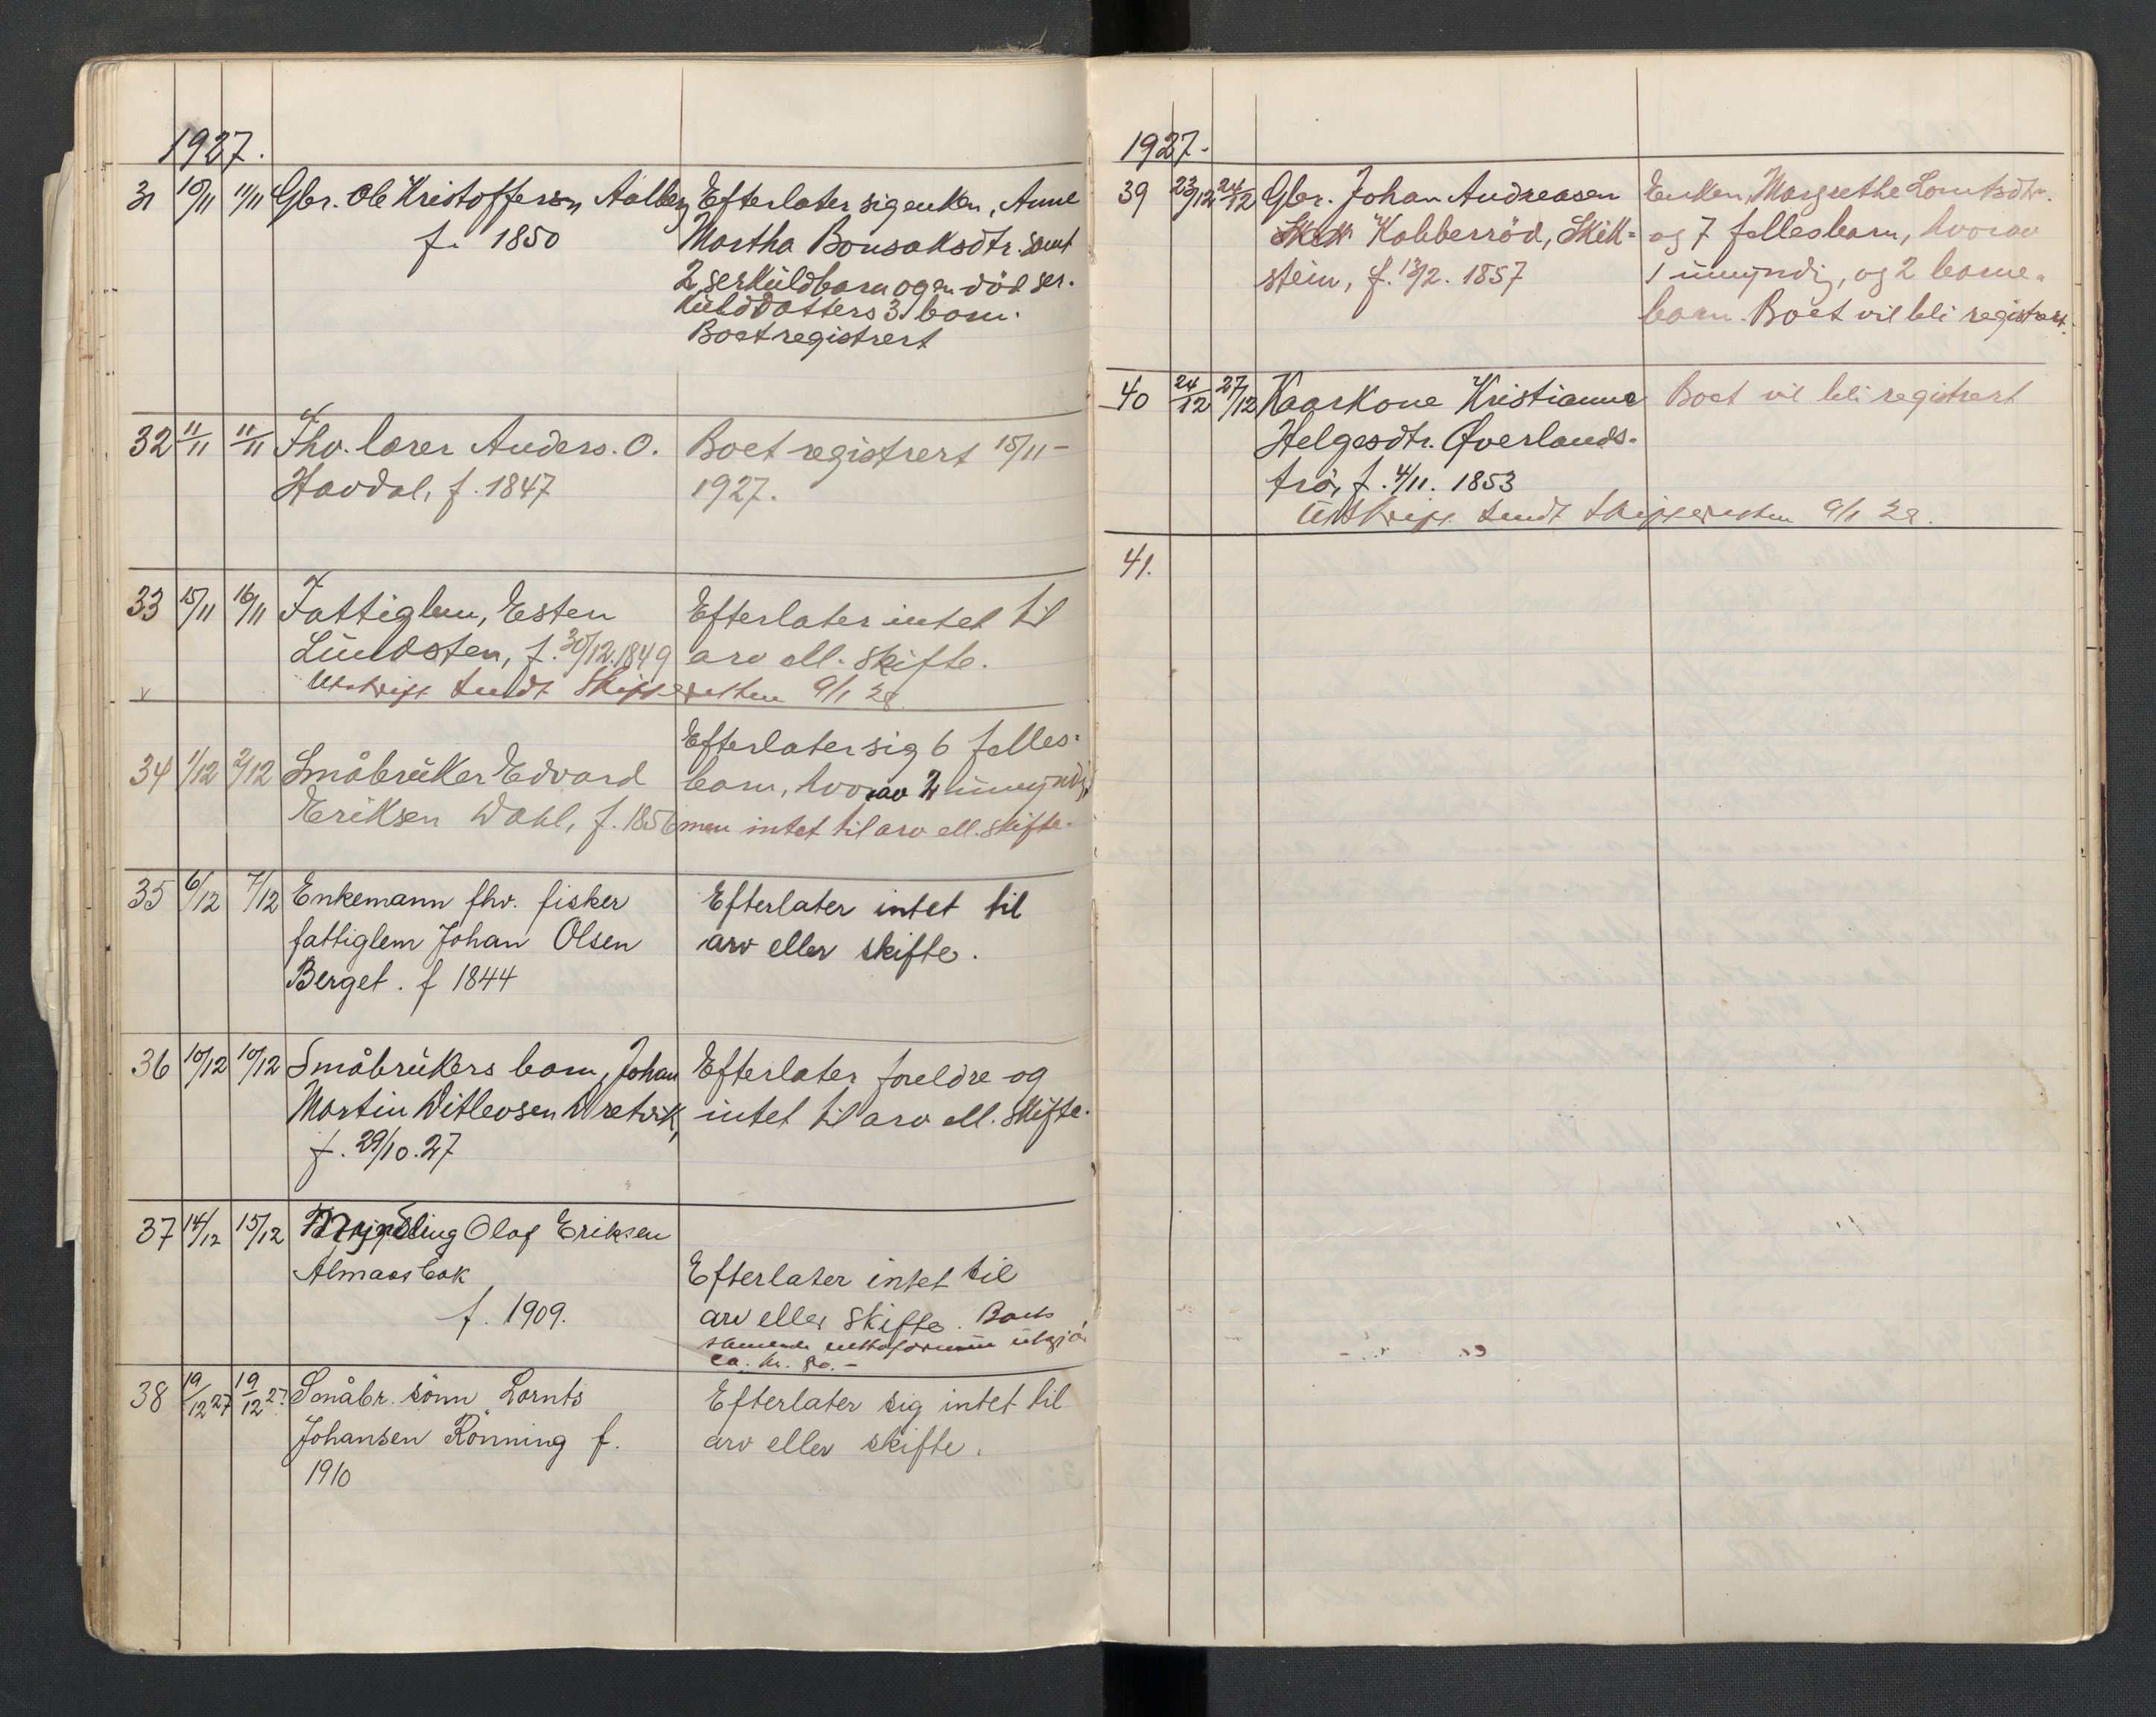 1927.
31 10/11 11/11 Gbr. Ole Kristoffersen Aalberg
f. 1850
Efterlater sig enken, Anne
Martha Bonsaksdtr. samt
2 serkuldbarn og en död ser-
kulddatters 3 barn.
Boet registrert
32 11/11 11/11 Fhv. lærer Anders. O.
Havdal, f. 1847
Boet registrert 15/11-
1927.
33 15/11 16/11 Fattiglem, Esten
Lundsten, f. 30/12.1849
Efterlater intet til
arv ell. skifte.
Utskrift sendt Skifteretten 9/1 28
34 1/12 2/12 Småbruker Edvard
Eriksen Dahl, f. 1856
Efterlater sig 6 felles-
barn, hvorav 2 umyndig,
men intet til arv ell. skifte.
35 6/12 7/12 Enkemann fhv. fisker
fattiglem Johan Olsen
Berget. f 1844
Efterlater intet til
arv eller skifte.
36 10/12 10/12 Småbrukers barn, Johan
Martin Ditlevsen Dretvik,
f. 29/10.27
Efterlater foreldre og
intet til arv ell. skifte.
37 14/12 15/12 Myndling Olaf Eriksen
Almaasbak
f. 1909.
Efterlater intet til
arv eller skifte. Boets
samlede nettoformue utgjör
ca. kr. 80.-
38 19/12 27 19/12 27 Småbr. sönn Lornts
Johansen Rönning f.
1910
Efterlater sig intet til
arv eller skifte.
1927.
39 23/12 24/12 Gbr. Johan Andreasen
Kobberröd, Skik-
stein, f. 13/2. 1857
Enken, Margrethe Lorntsdtr.
og 7 fellesbarn, hvorav
1 umyndig, og 2 barne-
barn. Boet vil bli registrert.
40 24/12 27/12 Kaarkone Kristianna
Helgesdtr. Øverlands-
trö, f. 4/11. 1853
Boet vil bli registrert
Utskrift sendt Skifteretten 9/1 28.
41.